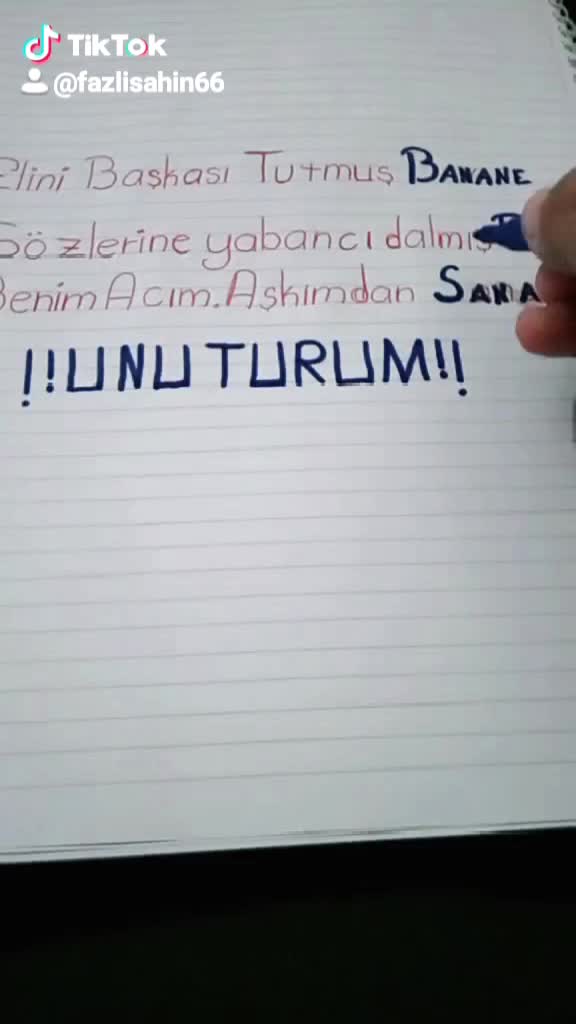 TikTok
@fazlisahin66
Elini Başkası Tutmuş BANANE
Gözlerine yabancı dalmış
Benim Acım. Aşkımdan SANA
!!UNUTURUM!!